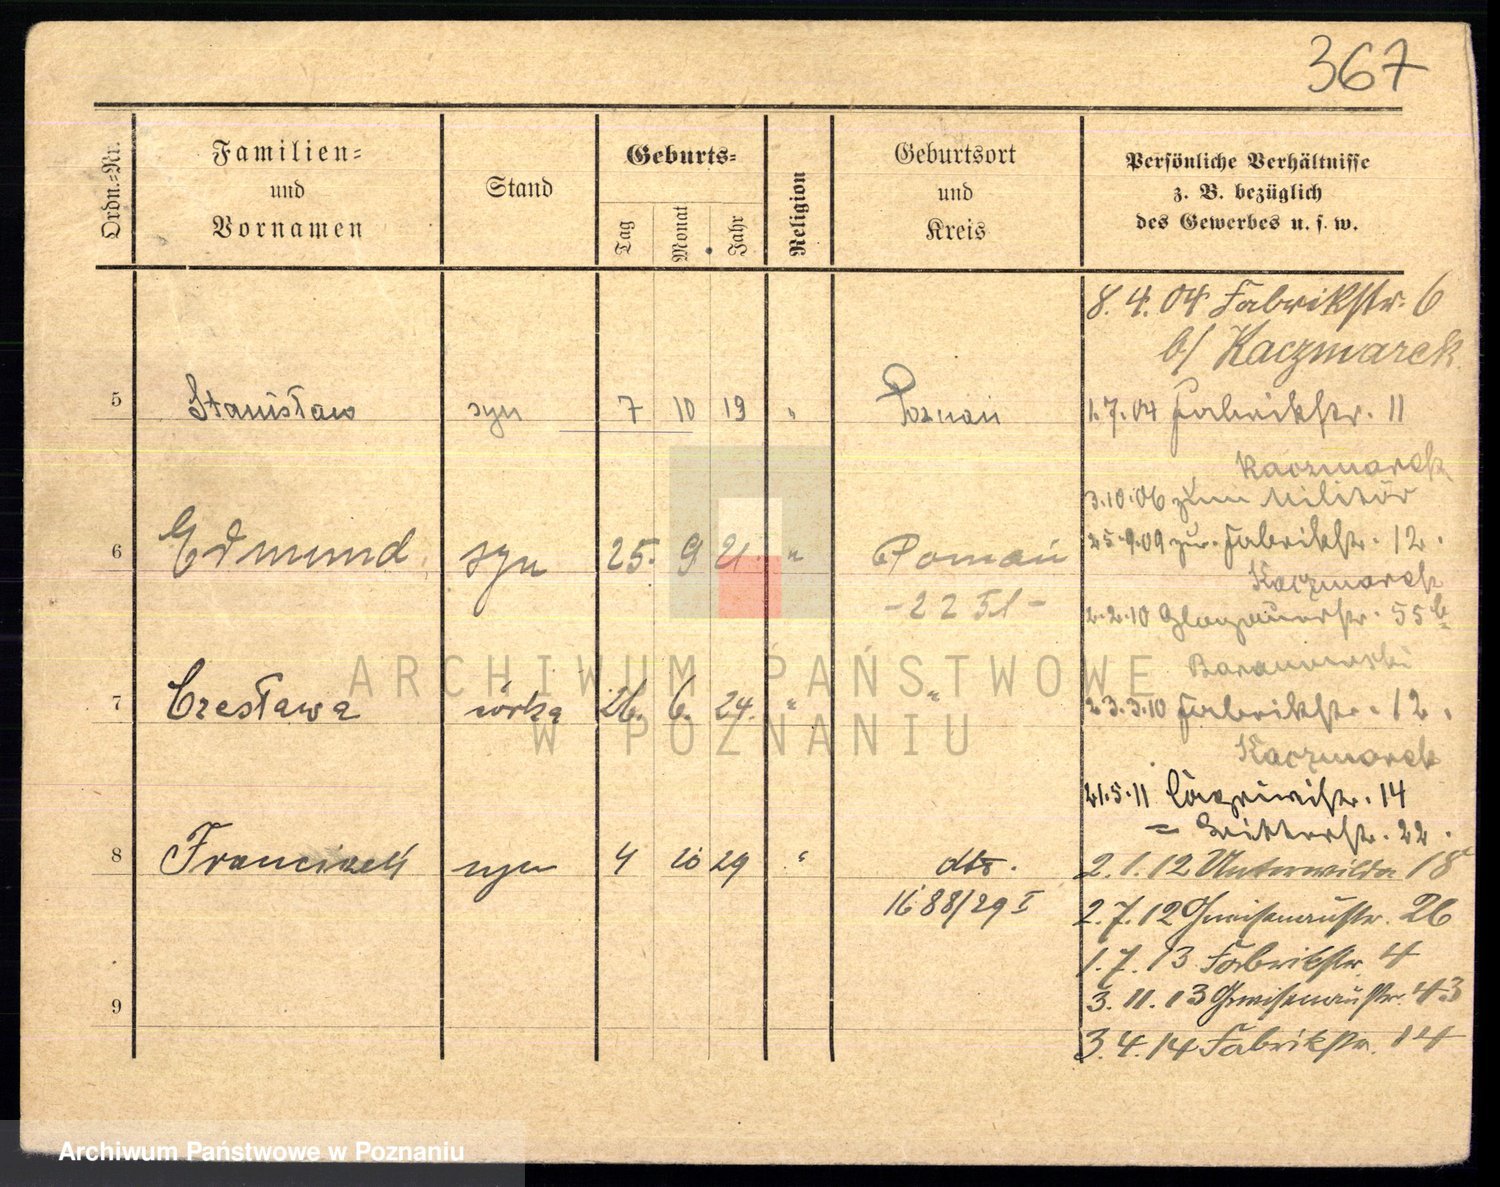 367
Ordn.-Nr.
Familien-
und
Vornamen
Stand
Geburts-
Tag
Monat
Jahr
Religion
Geburtsort
und
Kreis
Persönliche Verhältnisse
z. B. bezüglich
des Gewerbes u. s. w.
8.4.04 Fabrikstr. 6
b/ Kaczmarek
5 Stanisław syn 7 10 19 " Poznań
1.7.04 Fabrikstr. 11
Kaczmarek
3.10.06 zum Militär
6 Edmund syn 25. 9 21. " Poznań
25.9.09 zur. Fabrikstr. 12.
Kaczmarek
-2251-
2.2.10 Glogauerstr. 55b
Baranowski
ARCHIWUM PAŃSTWOWE
W POZNANIU
7 Czesława córka 26. 6. 24. " "
23.3.10 Fabrikstr. 12.
Kaczmarek
21.5.11 14
= 22.
8 Franciszek syn 4 10 29 " dto.
1688/29 I
2.1.12 Unterwilda 18
2.7.12 Gneisenaustr. 26
1.7.13 Fabrikstr. 4
9
3.11.13 Gneisenaustr. 43
3.4.14 Fabrikstr. 14
Archiwum Państwowe w Poznaniu